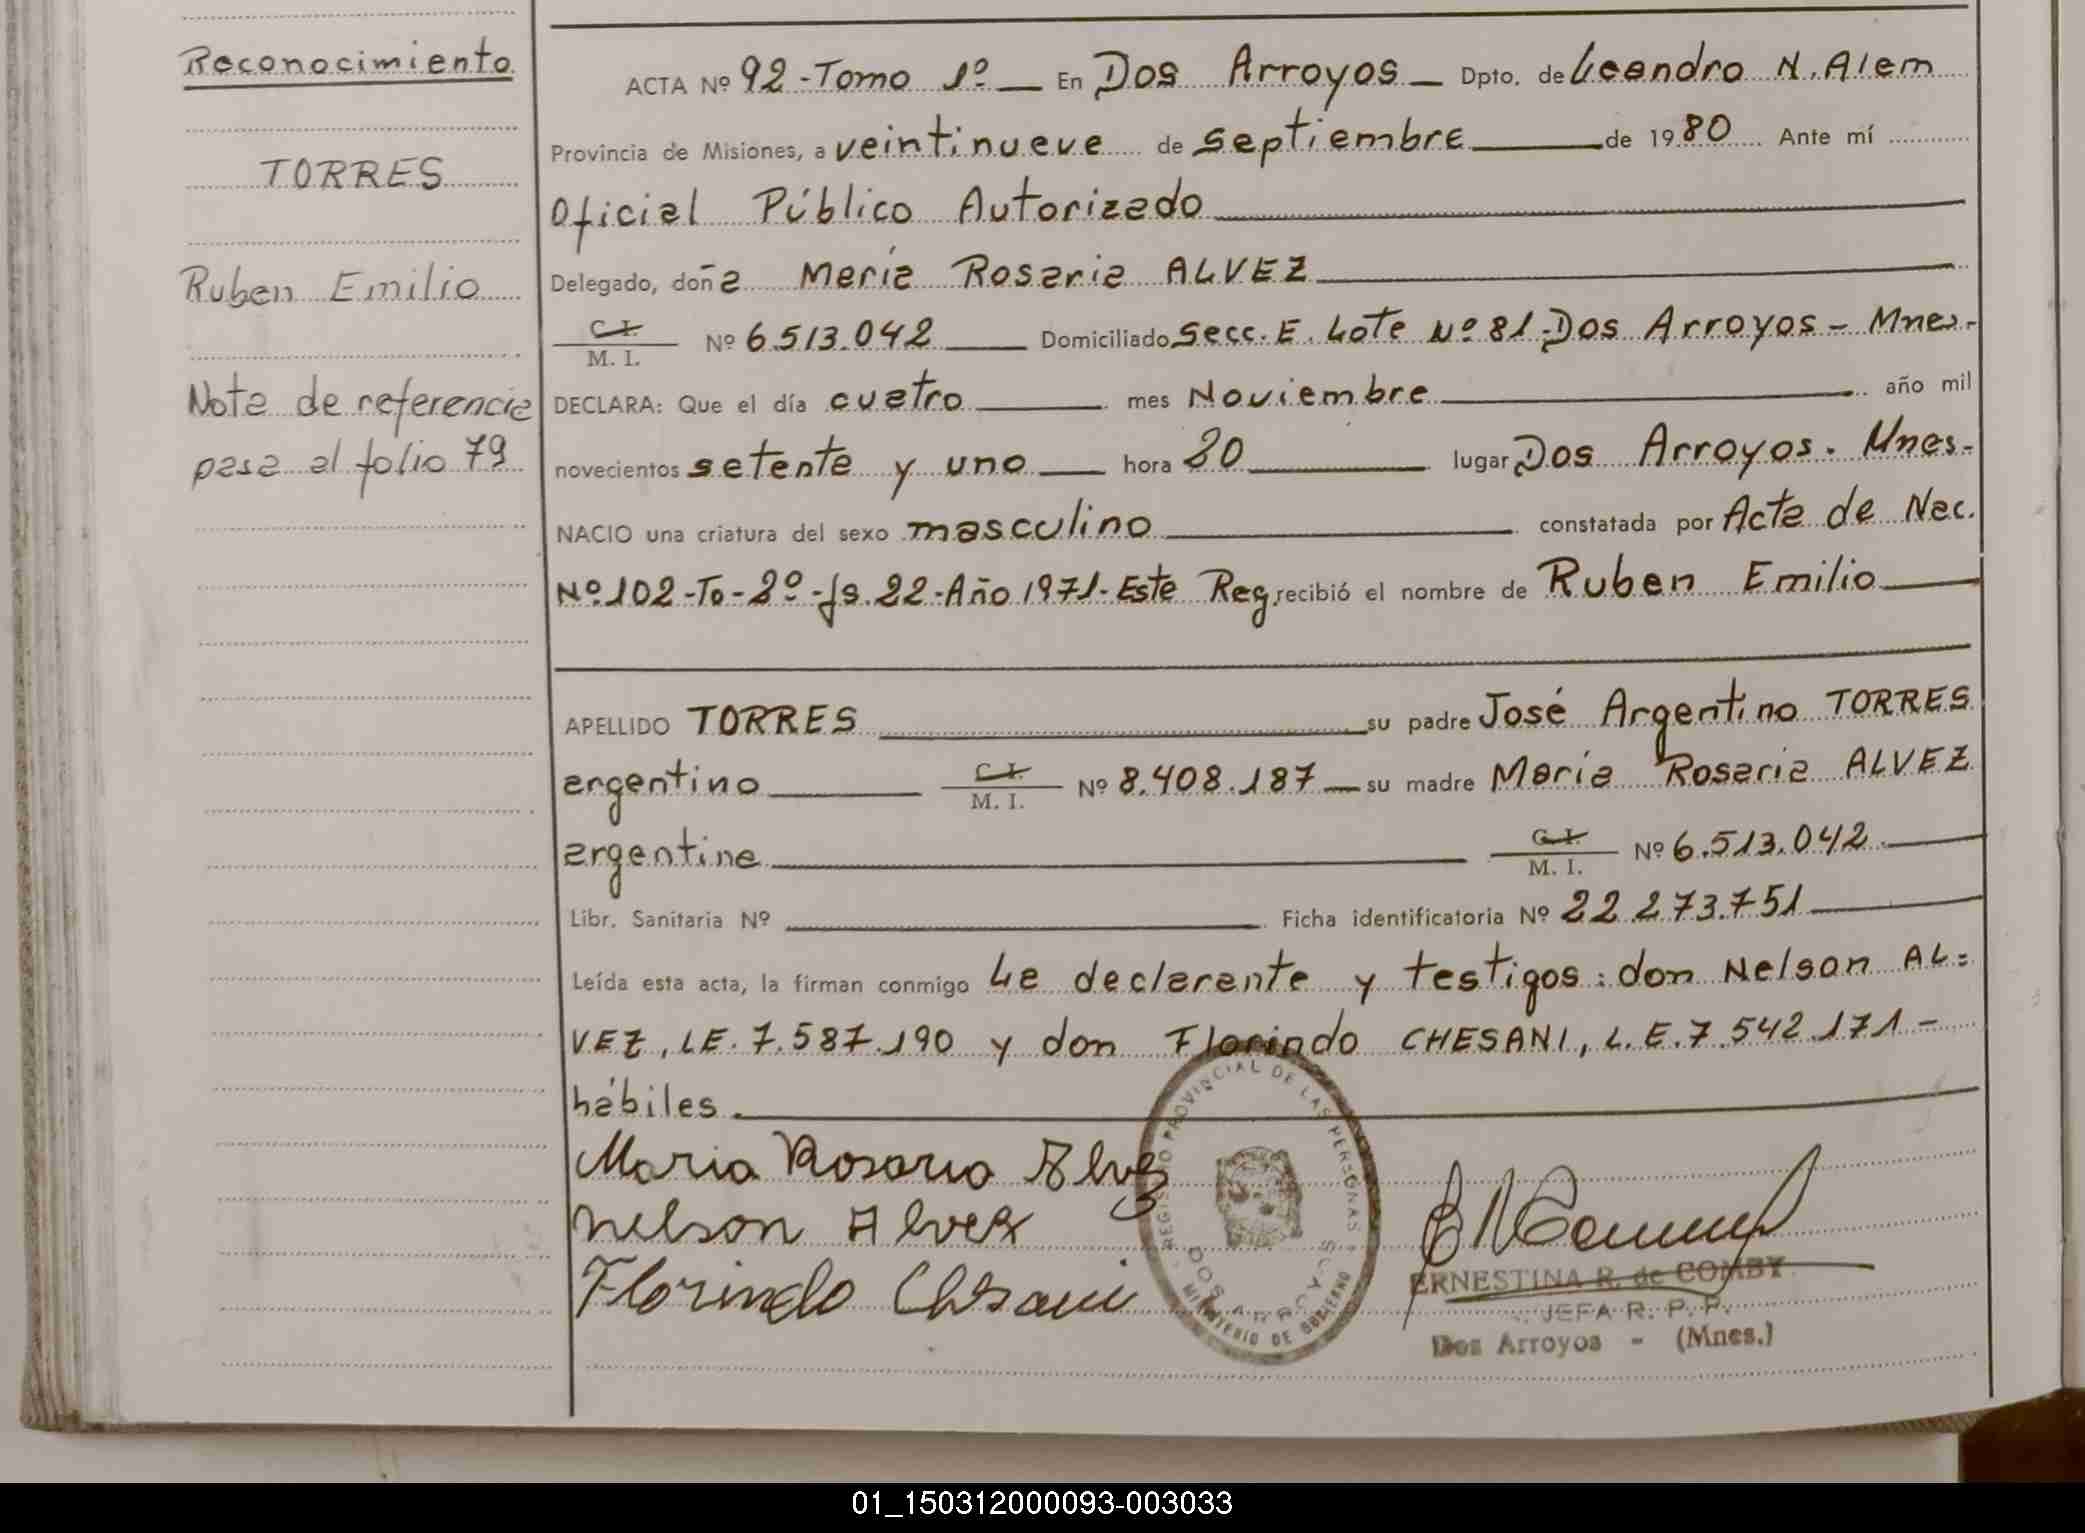 Reconocimiento
TORRES
Ruben Emilio
Nota de referencia
pasa al folio 79
ACTA Nº 92 - Tomo 1º — En Dos Arroyos — Dpto. de Leandro N. Alem
Provincia de Misiones, a veintinueve de septiembre — de 1980 Ante mí
Oficial Público Autorizado
Delegado, doña María Rosaria ALVEZ
C. I.
M. I. Nº 6.513.042 — Domiciliado Secc. E. Lote Nº 81 - Dos Arroyos - Mnes.-
DECLARA: Que el día cuatro — mes Noviembre — año mil
novecientos setenta y uno — hora 20 — lugar Dos Arroyos - Mnes-
NACIO una criatura del sexo masculino — constatada por Acta de Nac.
Nº 102 - To - 2º - fs. 22 - Año 1971 - Este Reg. recibió el nombre de Ruben Emilio —
APELLIDO TORRES — su padre José Argentino TORRES
argentino — C. I.
M. I. Nº 8.408.187 — su madre María Rosaria ALVEZ
argentina — C. I.
M. I. Nº 6.513.042 —
Libr. Sanitaria Nº — Ficha identificatoria Nº 22.273.751 —
Leída esta acta, la firman conmigo La declarante y testigos: don Nelson AL=
VEZ, LE. 7.587.190 y don Florindo CHESANI, L.E. 7.542.171 -
hábiles.
Maria Rosaria Alvez
Nelson Alvez
Florindo Chesani
REGISTRO PROVINCIAL DE LAS PERSONAS
DOS ARROYOS
MINISTERIO DE GOBIERNO
ERNESTINA R. de COMBY
JEFA R. P. P.
Dos Arroyos - (Mnes.)
01_150312000093-003033